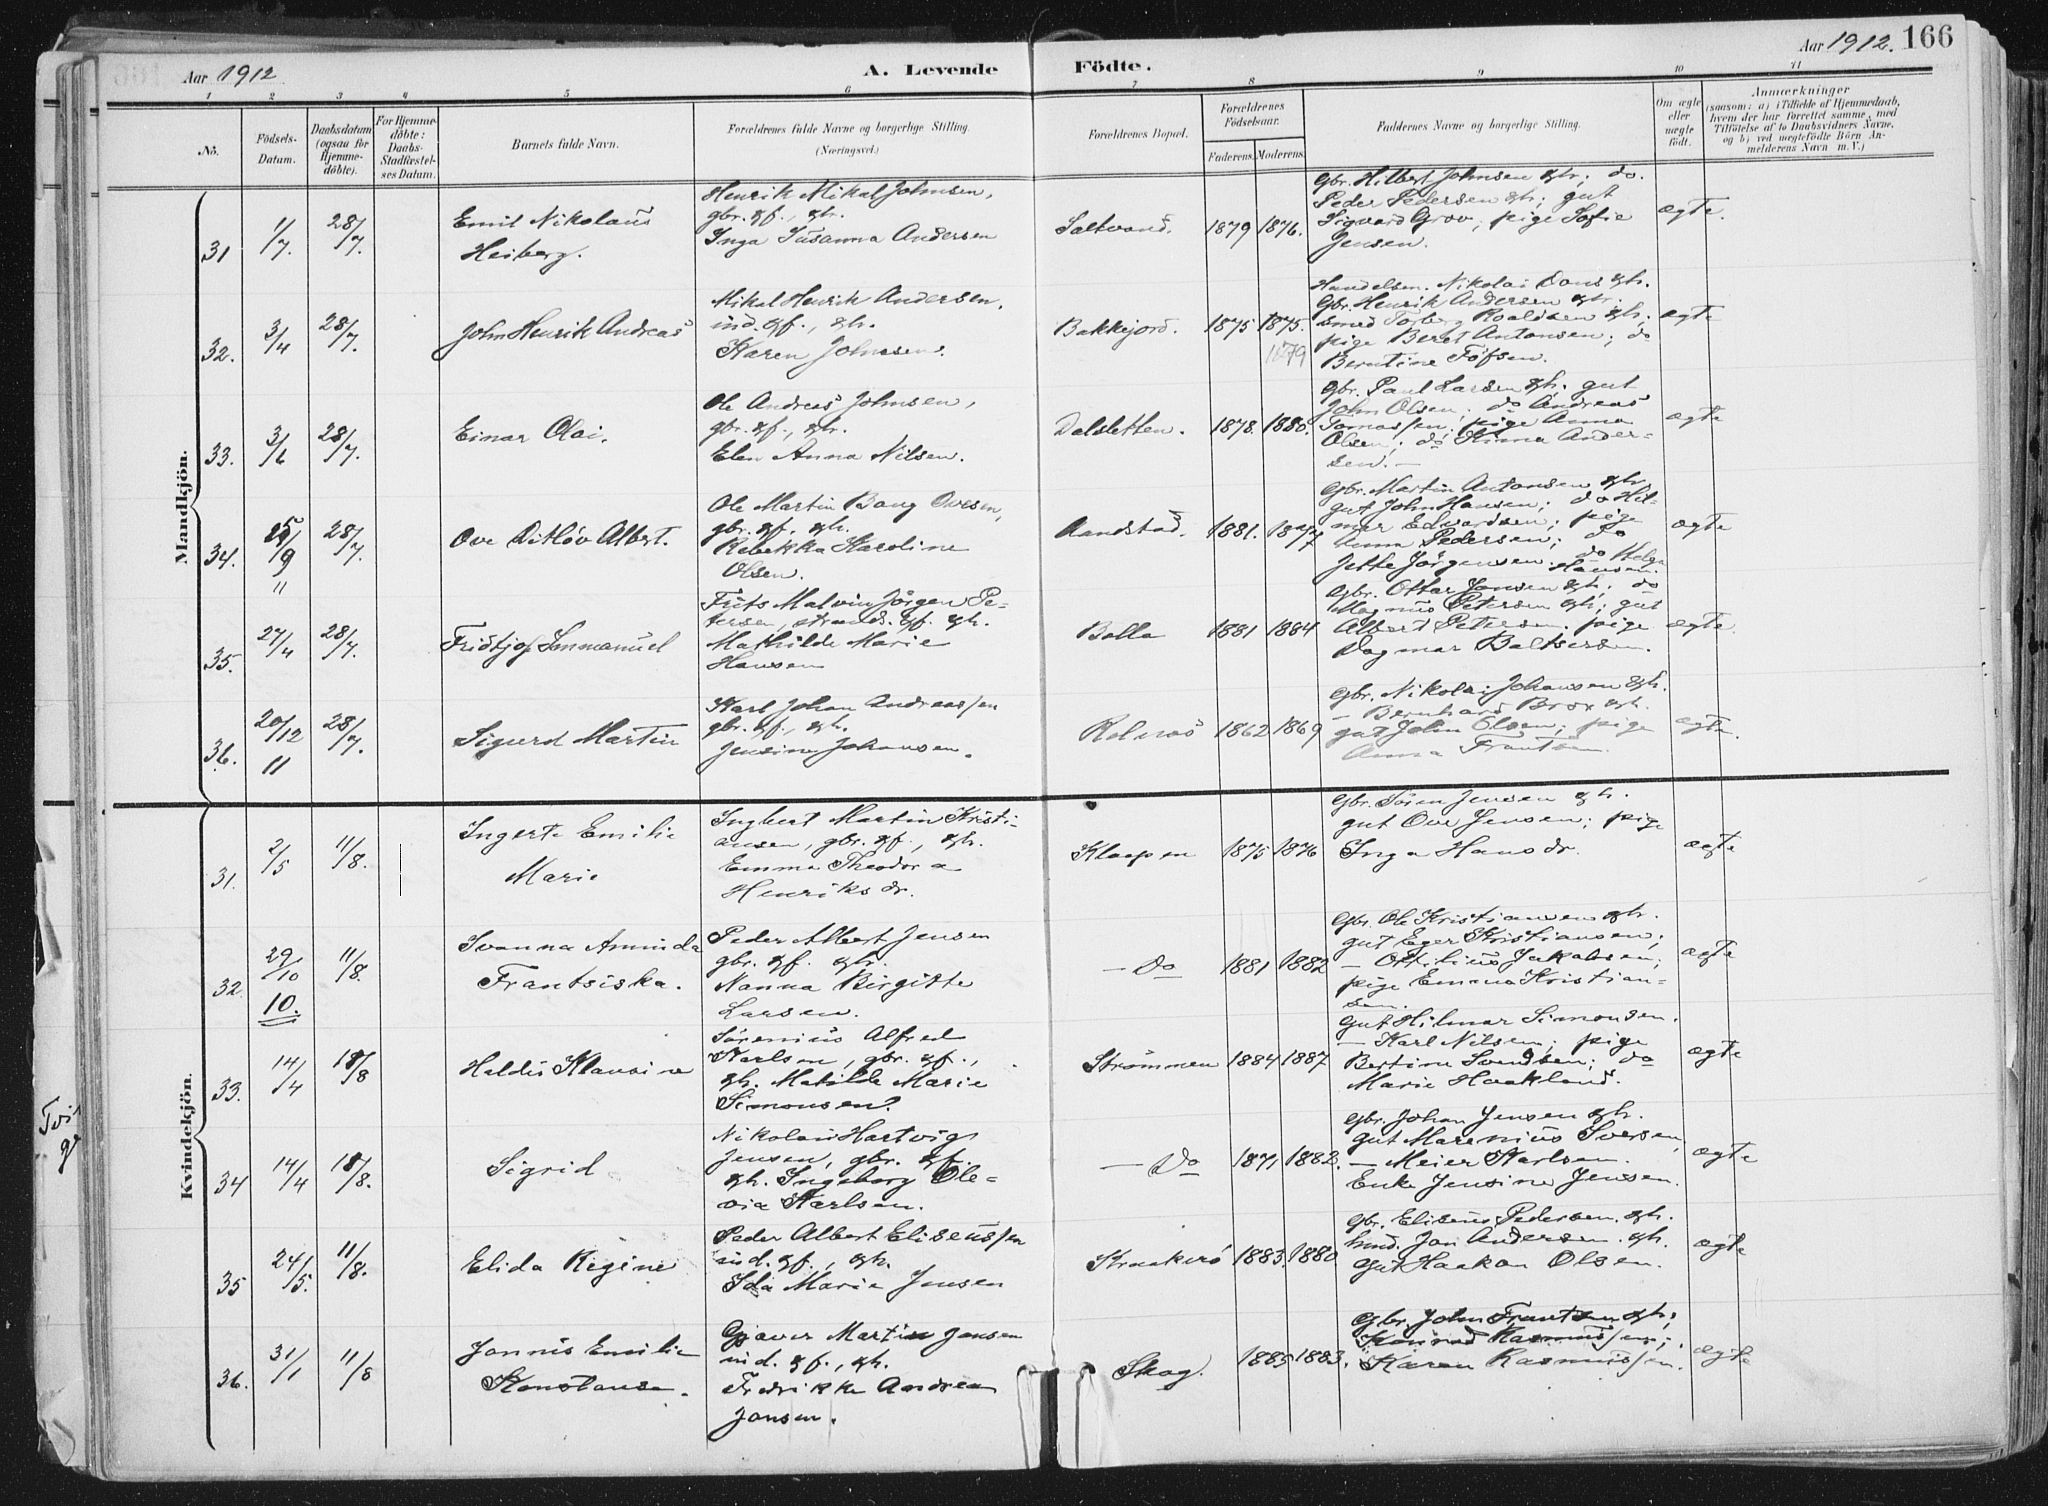 Aar 1912.
A. Levende Födte.
Aar 1912. 166
1 2 3 4 5 6 7 8 9 10 11
No.
Födsels-
Datum.
Daabsdatum
(ogsaa for
Hjemme-
döbte).
For Hjemme-
döbte:
Daabs-
Stadfæstel-
ses Datum.
Barnets fulde Navn.
Forældrenes fulde Navne og borgerlige Stilling.
(Næringsvei.)
Forældrenes Bopæl.
Forældrenes
Födselsaar.
Faderens. Moderens.
Faddernes Navne og borgerlige Stilling.
Om ægte
eller
uægte
födt.
Anmærkninger
(saasom: a) i Tilfælde af Hjemmedaab,
hvem der har forrettet samme, med
Tilföielse af to Daabsvidners Navne,
og b) ved uægtefödte Börn An-
melderens Navn m. V.)
Mandkjön.
31
1/7.
28/7.
Emil Nikolaus
Heiberg.
Henrik Mikal Johnsen,
gbr. gf., gh.
Inga Susanna Andersen
Saltvand.
1879
1876.
Gbr. Hilbert Johnsen gh; do.
Peder Pedersen gh; gut
Sigvard Grov; pige Sofie
Jensen.
ægte.
32.
3/4
28/7.
John Henrik Andreas
Mikal Henrik Andersen,
ind. gf., gh.
Karen Johnsen.
Bakkejord.
1875
1875.
1879
Handelsm. Nikolai Dons gh.
Gbr. Henrik Andersen gh.
smed Torberg Roaldsen gh;
pige Beret Antonsen; do
Berntine Tøfsen.
ægte
33.
3/6
28/7.
Einar Olai.
Ole Andreas Johnsen,
gbr. gf., gh.
Elen Anna Nilsen.
Dalsletten.
1878.
1880.
Gbr. Paul Larsen gh. gut
John Olsen; do Andreas
Tomassen; pige Anna
Olsen; do Anna Ander-
sen.
ægte
34.
25/9
11
28/7.
Ove Ditløv Albert.
Ole Martin Bang Ovesen,
gbr. gf. gh.
Rebekka Karoline
Olsen.
Sandstad.
1881.
1877
Gbr. Martin Antonsen gh
gut John Hansen; do Hil-
mar Edvardsen; pige
Anna Pedersen; do
Jette Jörgensen. do Helga
Hansen.
ægte
35.
27/4
28/7.
Fridtjof Immanuel
Frits Malvin Jörgen Pe-
tersen, strands. gf. gh.
Mathilde Marie
Hansen
Balla
1881
1884
Gbr. Ottar Jensen gh; do
Magnus Petersen gh; gut
Albert Petersen. pige
Dagmar Baltsersen.
ægte.
36.
20/12
11
28/7.
Sigurd Martin
Karl Johan Andreassen
gbr. gf., gh.
Jensine Johansen.
Kolnæs
1862
1869
Gbr. Nikolai Johansen gh.
— Bernhard Brox gh.
gut John Olsen; pige
Anna Frantsen.
ægte.
Kvindekjön.
31.
2/5
11/8.
Ingerte Emilie
Marie
Ingbert Martin Kristi-
ansen, gbr. gf., gh.
Emma Theodora
Henriksdr.
Klaapen
1875
1876
Gbr. Sören Jensen gh.
gut Ove Jensen; pige
Inga Hansdr.
ægte
32
29/10
10.
11/8.
Ivanna Aminda
Frantsiska.
Peder Albert Jensen
gbr. gf. gh.
Nanna Birgitte
Larsen.
— Do
1881
1882
Gbr. Ole Kristiansen gh.
gut Eger Kristiansen;
— Ottilius Jakobsen;
pige Emma Kristian-
sen.
ægte
33.
14/4
18/8
Haldis Klausine
Sörenius Alfred
Karlsen, gbr. gf.,
gh. Matilde Marie
Simonsen.
Strömmen
1884
1887
Gut Hilmar Simonsen.
— Karl Nilsen; pige
Bertine Svendsen; do
Marie Haakland.
ægte
34
14/4
18/8.
Sigrid
Nikolai Hartvig
Jensen, gbr. gf.
gh. Ingeborg Ole-
via Karlsen.
— Do
1871
1882.
Gbr. Johan Jensen gh.
gut Marenius Iversen,
— Meier Karlsen.
Enke Jensine Jensen.
ægte
35
24/5.
11/8.
Elida Regine
Peder Albert Eliseussen
ind. gf., gh.
Ida Marie Jensen
Straakerö
1883.
1880
gbr. Eliseus Pedersen. gh.
hmd. Jon Andersen. gh.
Gut Haakon Olsen.
ægte
36.
31/1
11/8
Jonnis Emilie
Konstanse.
Gjæver Martin Jensen
ind. gf., gh.
Fredrikke Andrea
Jansen.
Skog.
1885
1883.
Gbr. John Frantsen gh;
Konrad Rasmussen;
Karen Rasmussen.
ægte